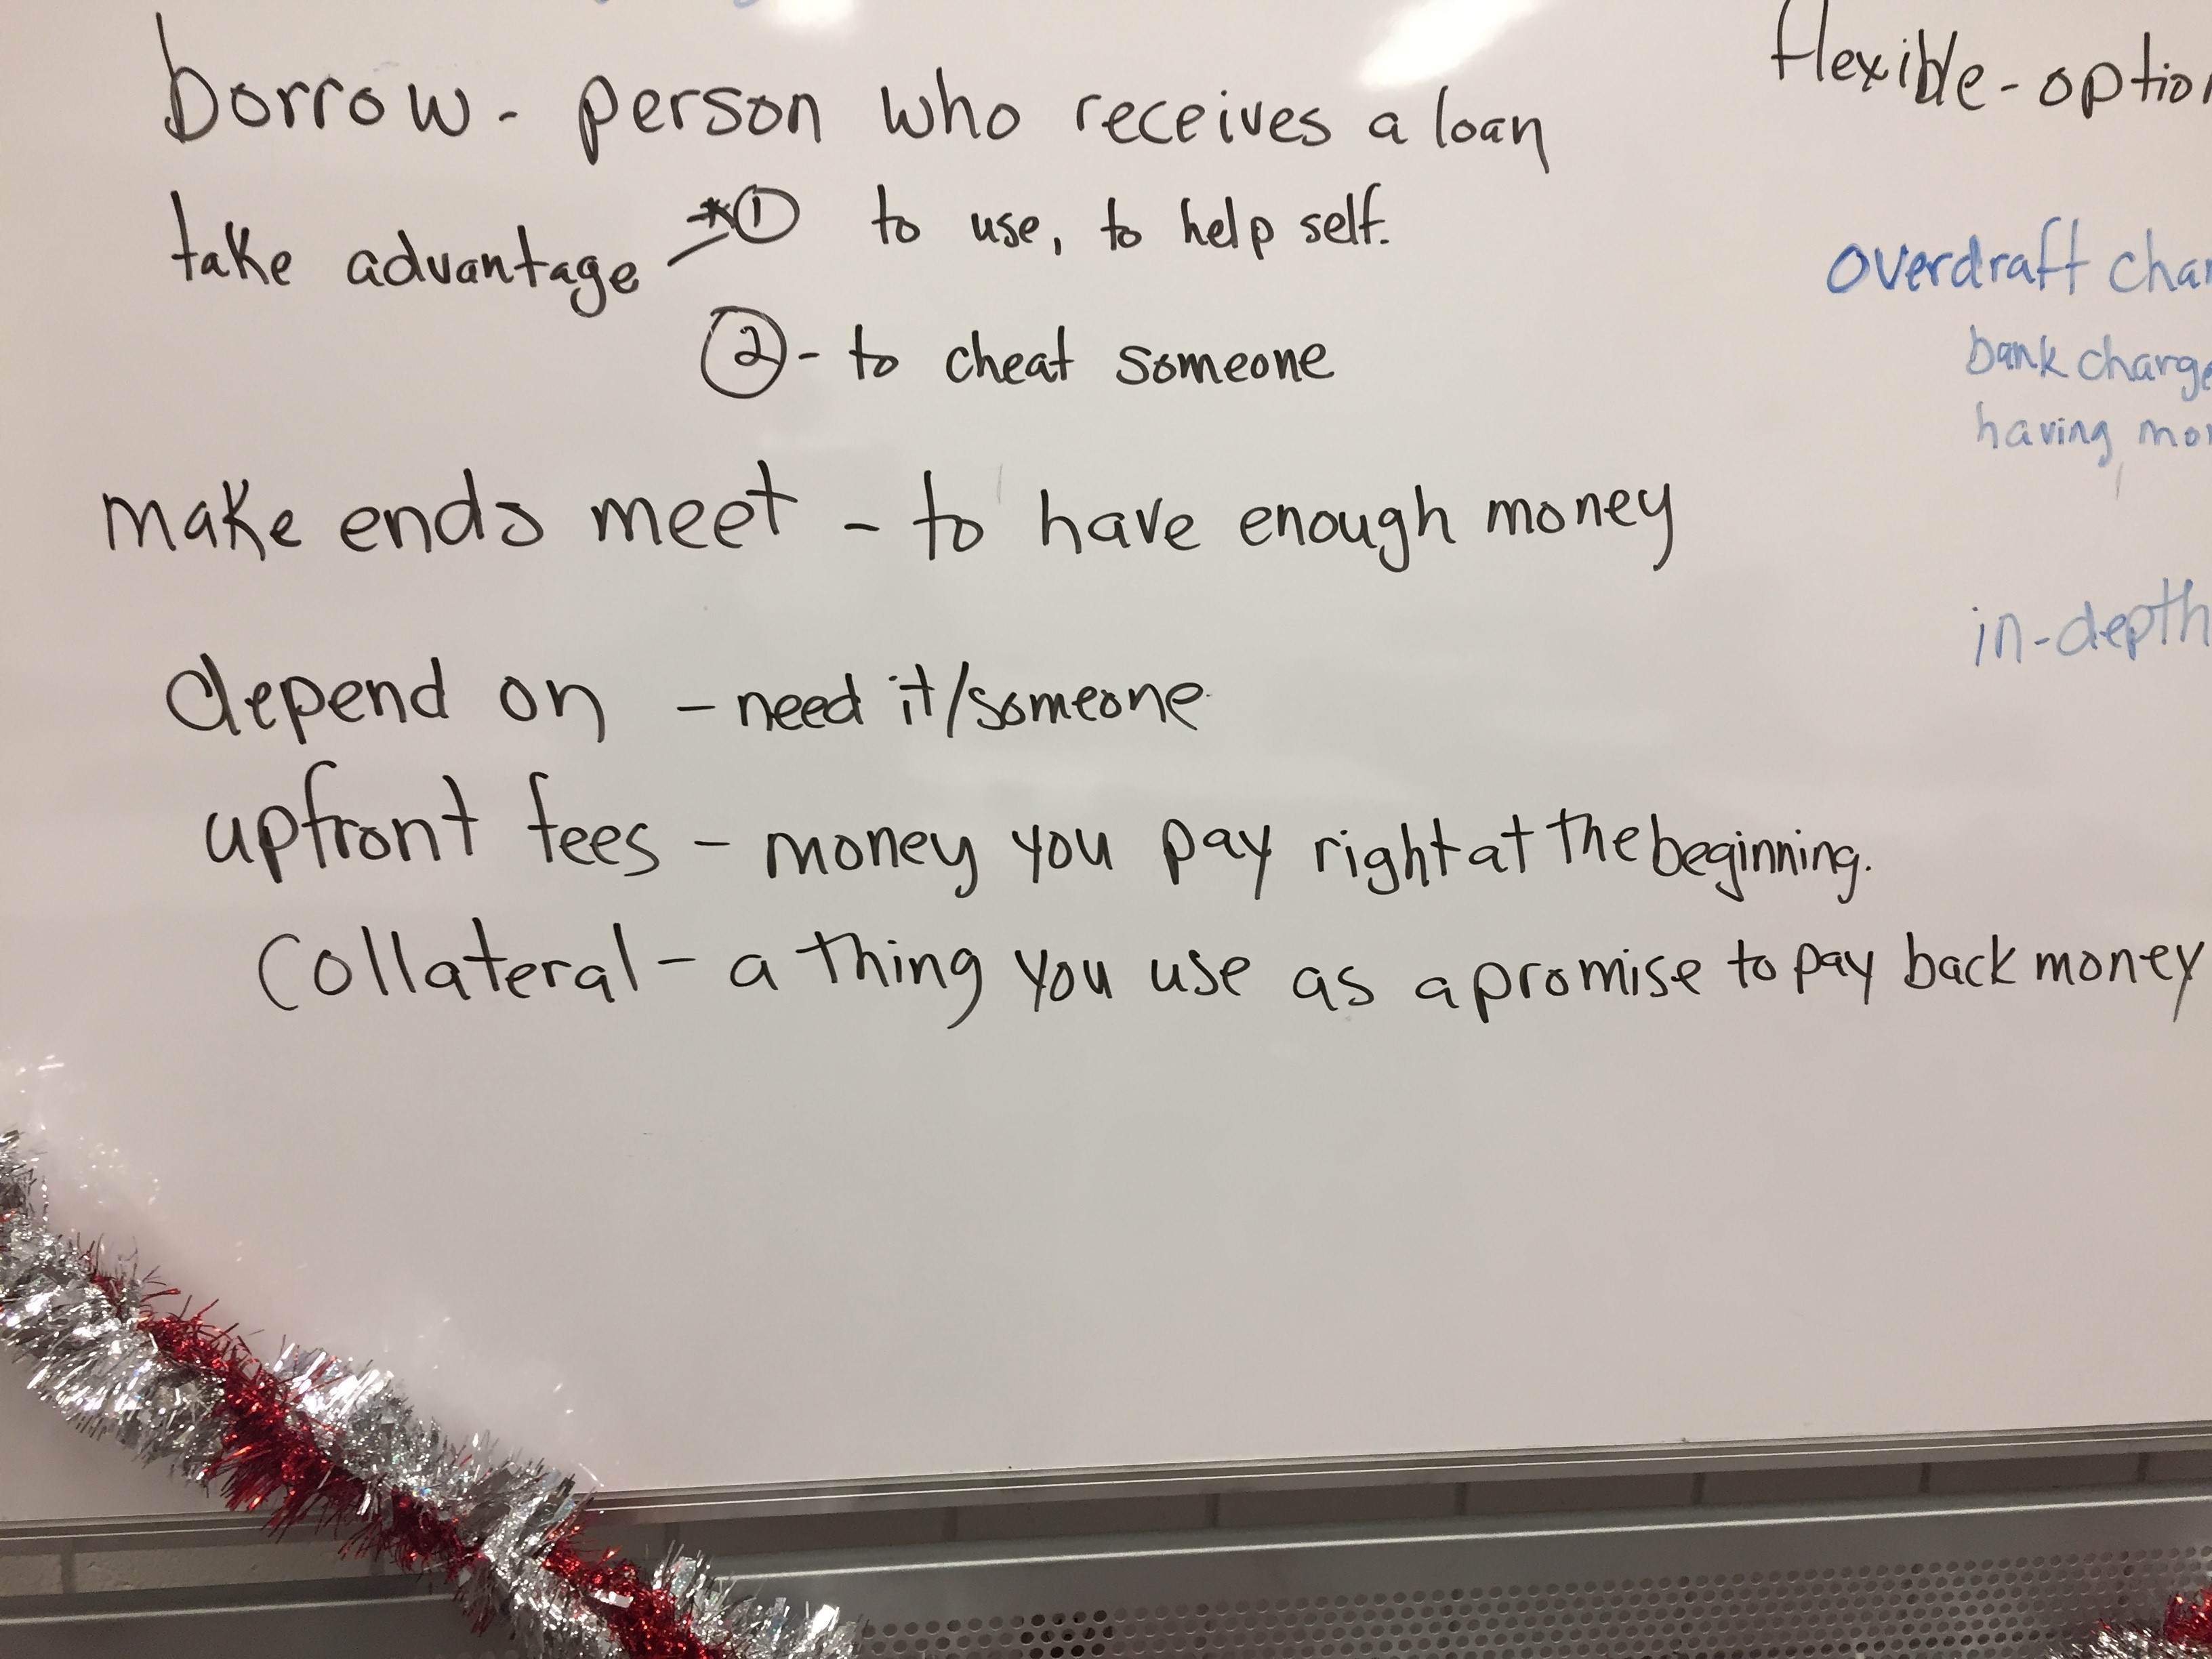 borrow - person who receives a loan
take advantage → ① to use, to help self.
② - to cheat someone
make ends meet - to have enough money
depend on - need it/someone
upfront fees - money you pay right at the beginning.
Collateral - a thing you use as a promise to pay back money
flexible - option
overdraft char
bank charge
having mo
in-depth